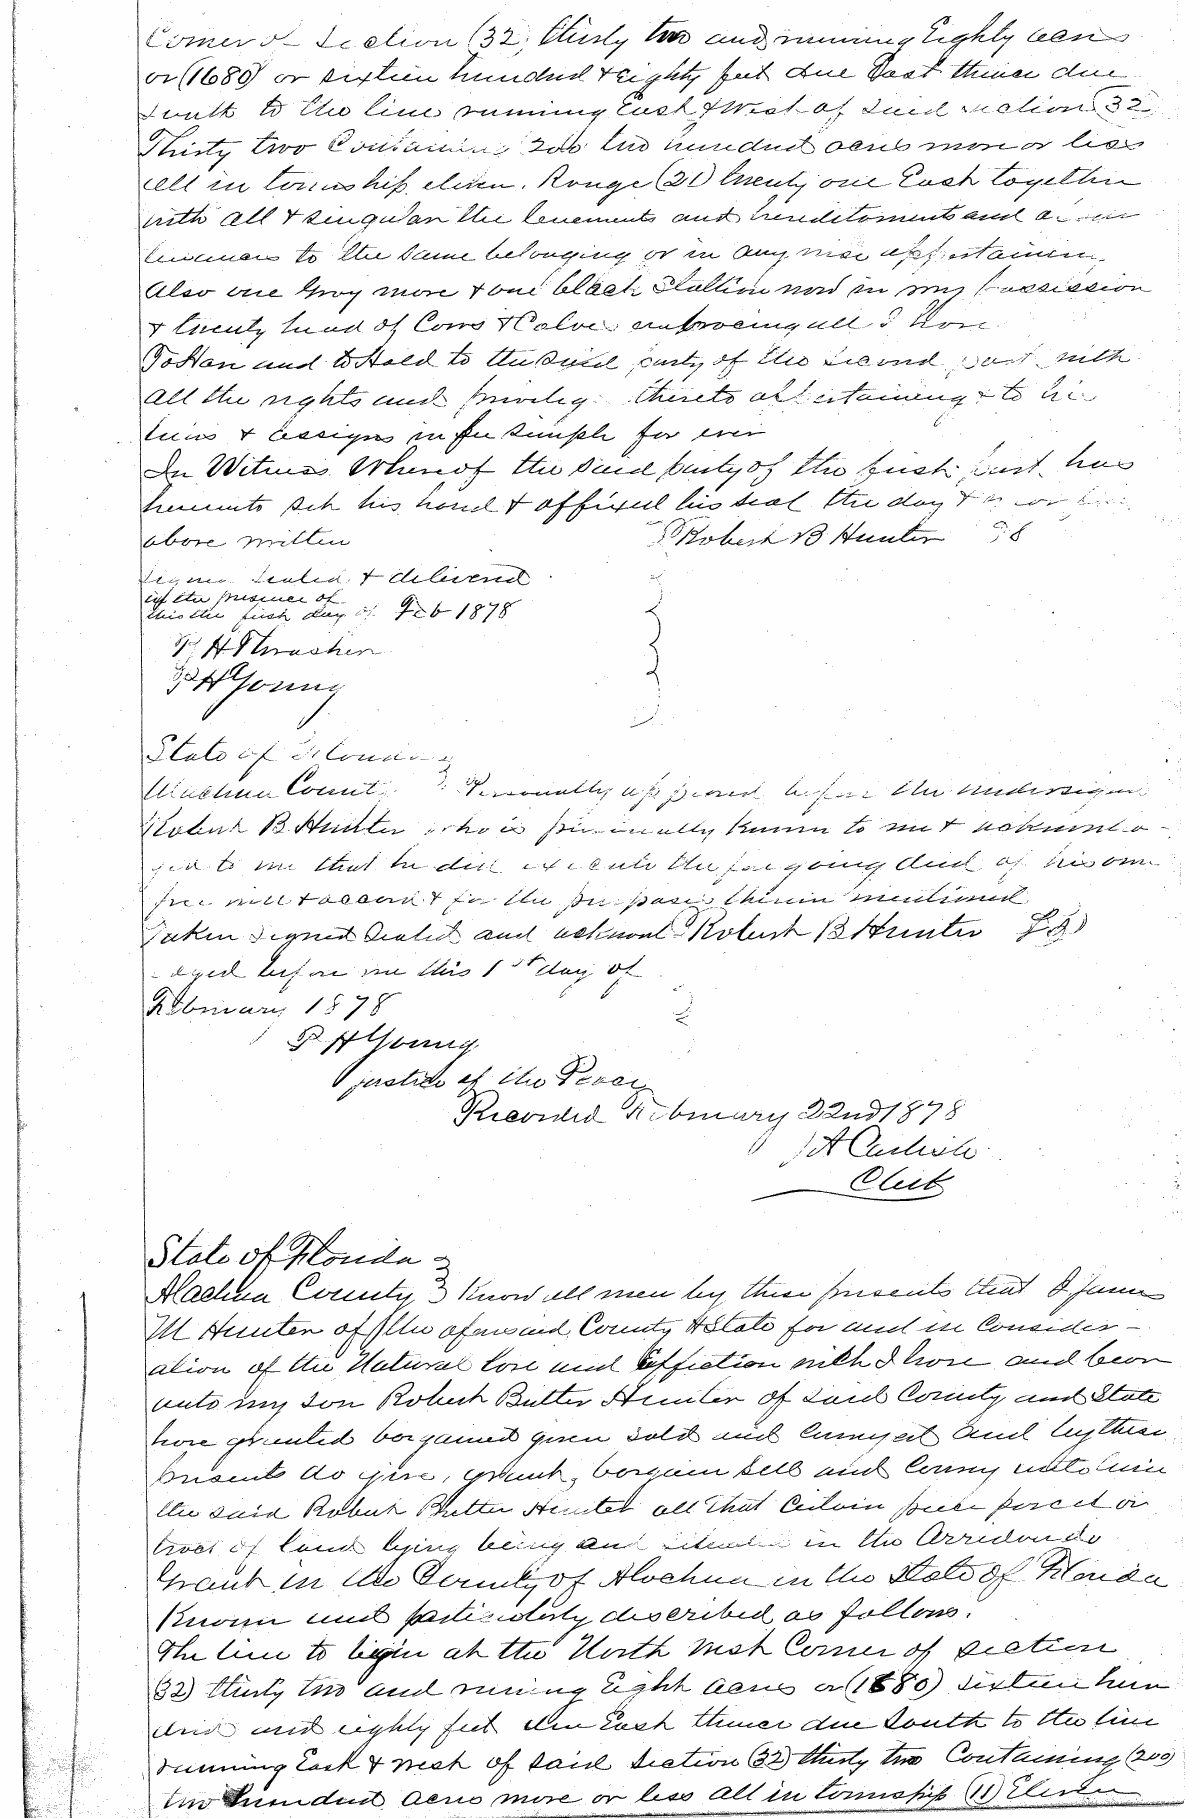 Corner of Section (32) thirty two and running Eighty acres
or (1680) or sixteen hundred & eighty feet due East thence due
South to the line running East & West of Said Section (32)
Thirty two Containing 200 two hundred acres more or less
all in township eleven. Range (21) twenty one East together
with all & singular the tenements and hereditaments and
to the Same belonging or in any wise appertaining
Also one Gray mare & one black Stallion now in my possission
& twenty head of Cows & Calves embraceing all I
To Have and to Hold to the Said party of the Second part with
all the rights and thereto appertaining & to his
heirs & assigns in fee simple for ever
In Witness Whereof the Said party of the first part has
hereunto set his hand & affixed his seal the day &
above written Robert B Hunter
Signed Sealed & delivered
in the presence of
this the first day of Feb 1878
H Thrasher
P H Young
State of Florida
Alachua County Personally appeared before the undersigned
Robert B Hunter who is personally known to me & acknowl
to me that he did execute the foregoing deed of his own
free will & accord & for the purposes therein mentioned
Taken Signed Sealed and acknowl Robert B Hunter
-eged before me this 1st day of
February 1878
P H Young
justice of the Peace
Recorded February 22nd 1878
J A Carlisle
Clerk
State of Florida
Alachua County Know all men by these presents that I James
M Hunter of the aforesaid County & State for and in Consider-
ation of the Natural love and affection with I have and bear
unto my son Robert Butler Hunter of Said County and State
have granted bargained given sold and conveyed and by these
presents do give, grant, bargain sell and Convey unto him
the said Robert Butler Hunter all that Certain piece parcel or
tract of land lying being and situated in the Arridondo
Grant in the County of Alachua in the State of Florida
Known and particularly described as follows.
The line to begin at the North West Corner of Section
(32) thirty two and running Eight acres or (1680) Sixteen hun
dred and eighty feet due East thence due South to the line
running East & West of Said Section (32) thirty two Containing (200)
two hundred acres more or less all in township (11) Eleven